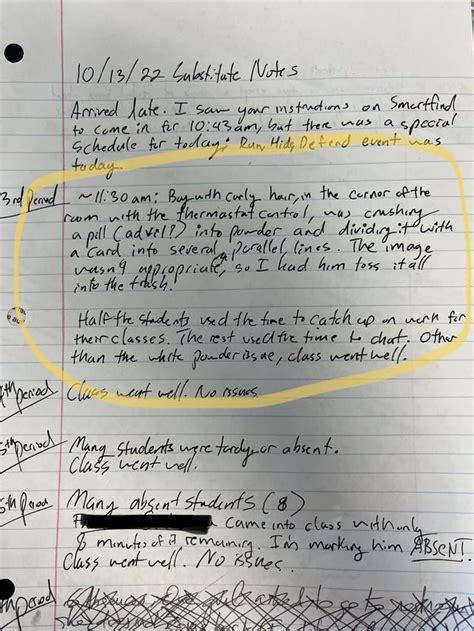 10/13/22 Substitute Notes
Arrived late. I saw your instructions on Smartfind
to come in for 10:43am, but there was a special
schedule for today; Run, Hide, Defend event was
today.
3rd Period ~11:30am: Boy with curly hair, in the corner of the
room with the thermostat control, was crushing
a pill (advil?) into powder and dividing it with
a card into several parallel lines. The image
wasn't appropriate, so I had him toss it all
into the trash!
Half the students used the time to catch up on work for
their classes. The rest used the time to chat. Other
than the white powder issue, class went well.
4th period Class went well. No issues.
5th period Many students were tardy or absent.
Class went well.
6th Period Many absent students (8)
came into class with only
8 minutes of it remaining. I'm marking him ABSENT.
Class went well. No issues.
period